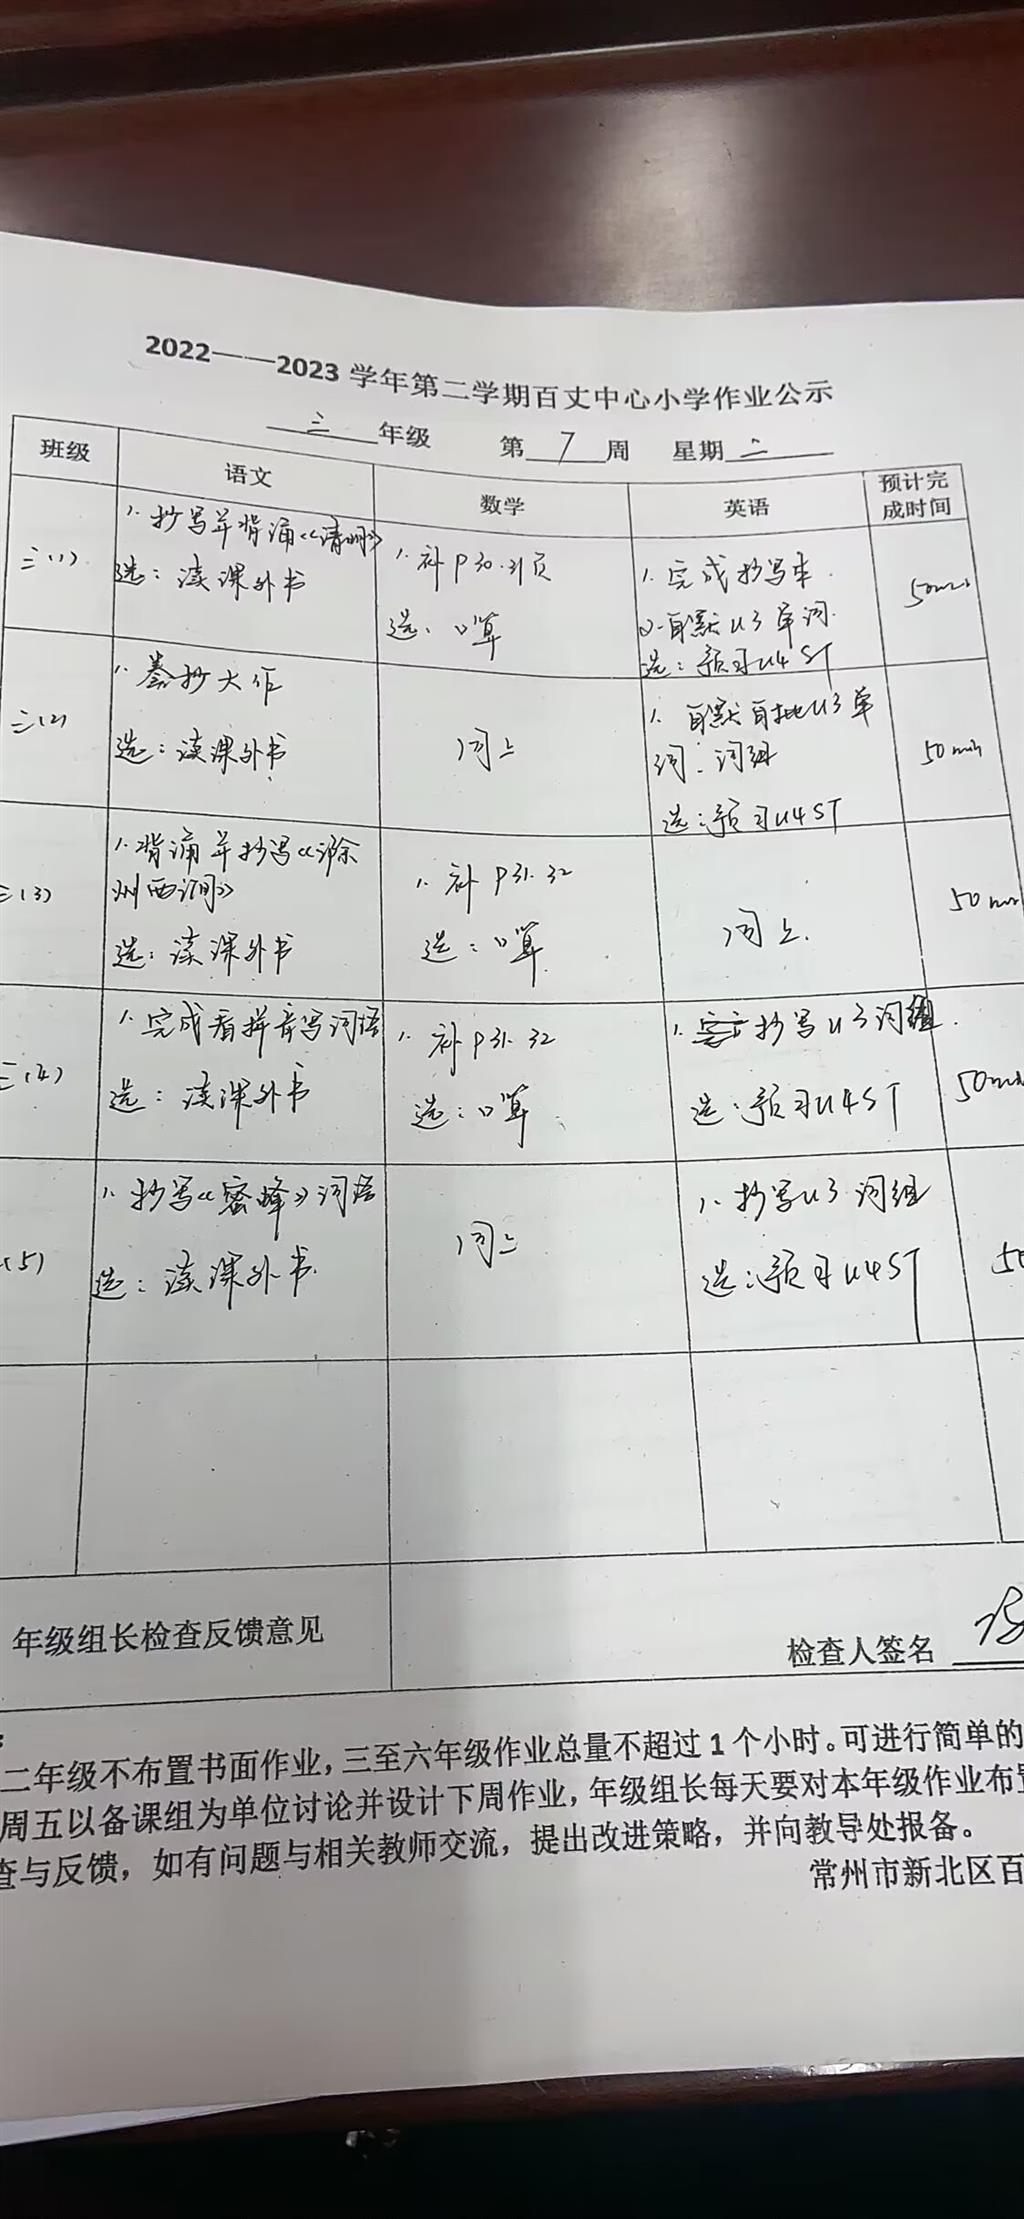 2022——2023 学年第二学期百丈中心小学作业公示
三 年级 第 7 周 星期 二
班级 语文 数学 英语 预计完成时间
三(1)
1. 抄写并背诵《清明》
选：读课外书
1. 补P30.31页
选：口算
1. 完成抄写本
2. 自默U3单词
选：预习U4 ST
50min
三(2)
1. 誊抄大作
选：读课外书
同上
1. 自默自批U3单
词、词组
选：预习U4ST
50min
三(3)
1. 背诵并抄写《滁
州西涧》
选：读课外书
1. 补P31.32
选：口算
同上.
50min
三(4)
1. 完成看拼音写词语
选：读课外书
1. 补P31.32
选：口算
1. 抄写U3词组.
选：预习U4ST
50min
(5)
1. 抄写《蜜蜂》词语
选：读课外书.
同上
1. 抄写U3词组
选：预习U4ST
50
年级组长检查反馈意见
检查人签名
二年级不布置书面作业，三至六年级作业总量不超过1个小时。可进行简单的
周五以备课组为单位讨论并设计下周作业，年级组长每天要对本年级作业布置
查与反馈，如有问题与相关教师交流，提出改进策略，并向教导处报备。
常州市新北区百